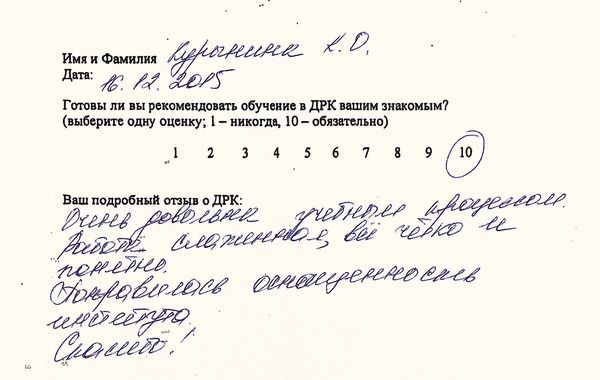 Имя и Фамилия Курынина К.О.
Дата: 16.12.2015
Готовы ли вы рекомендовать обучение в ДРК вашим знакомым?
(выберите одну оценку; 1 – никогда, 10 – обязательно)
1 2 3 4 5 6 7 8 9 10
Ваш подробный отзыв о ДРК:
Очень довольна учебным процессом.
Работа слаженная, всё чётко и
понятно.
Понравилась оснащенность
института.
Спасибо!